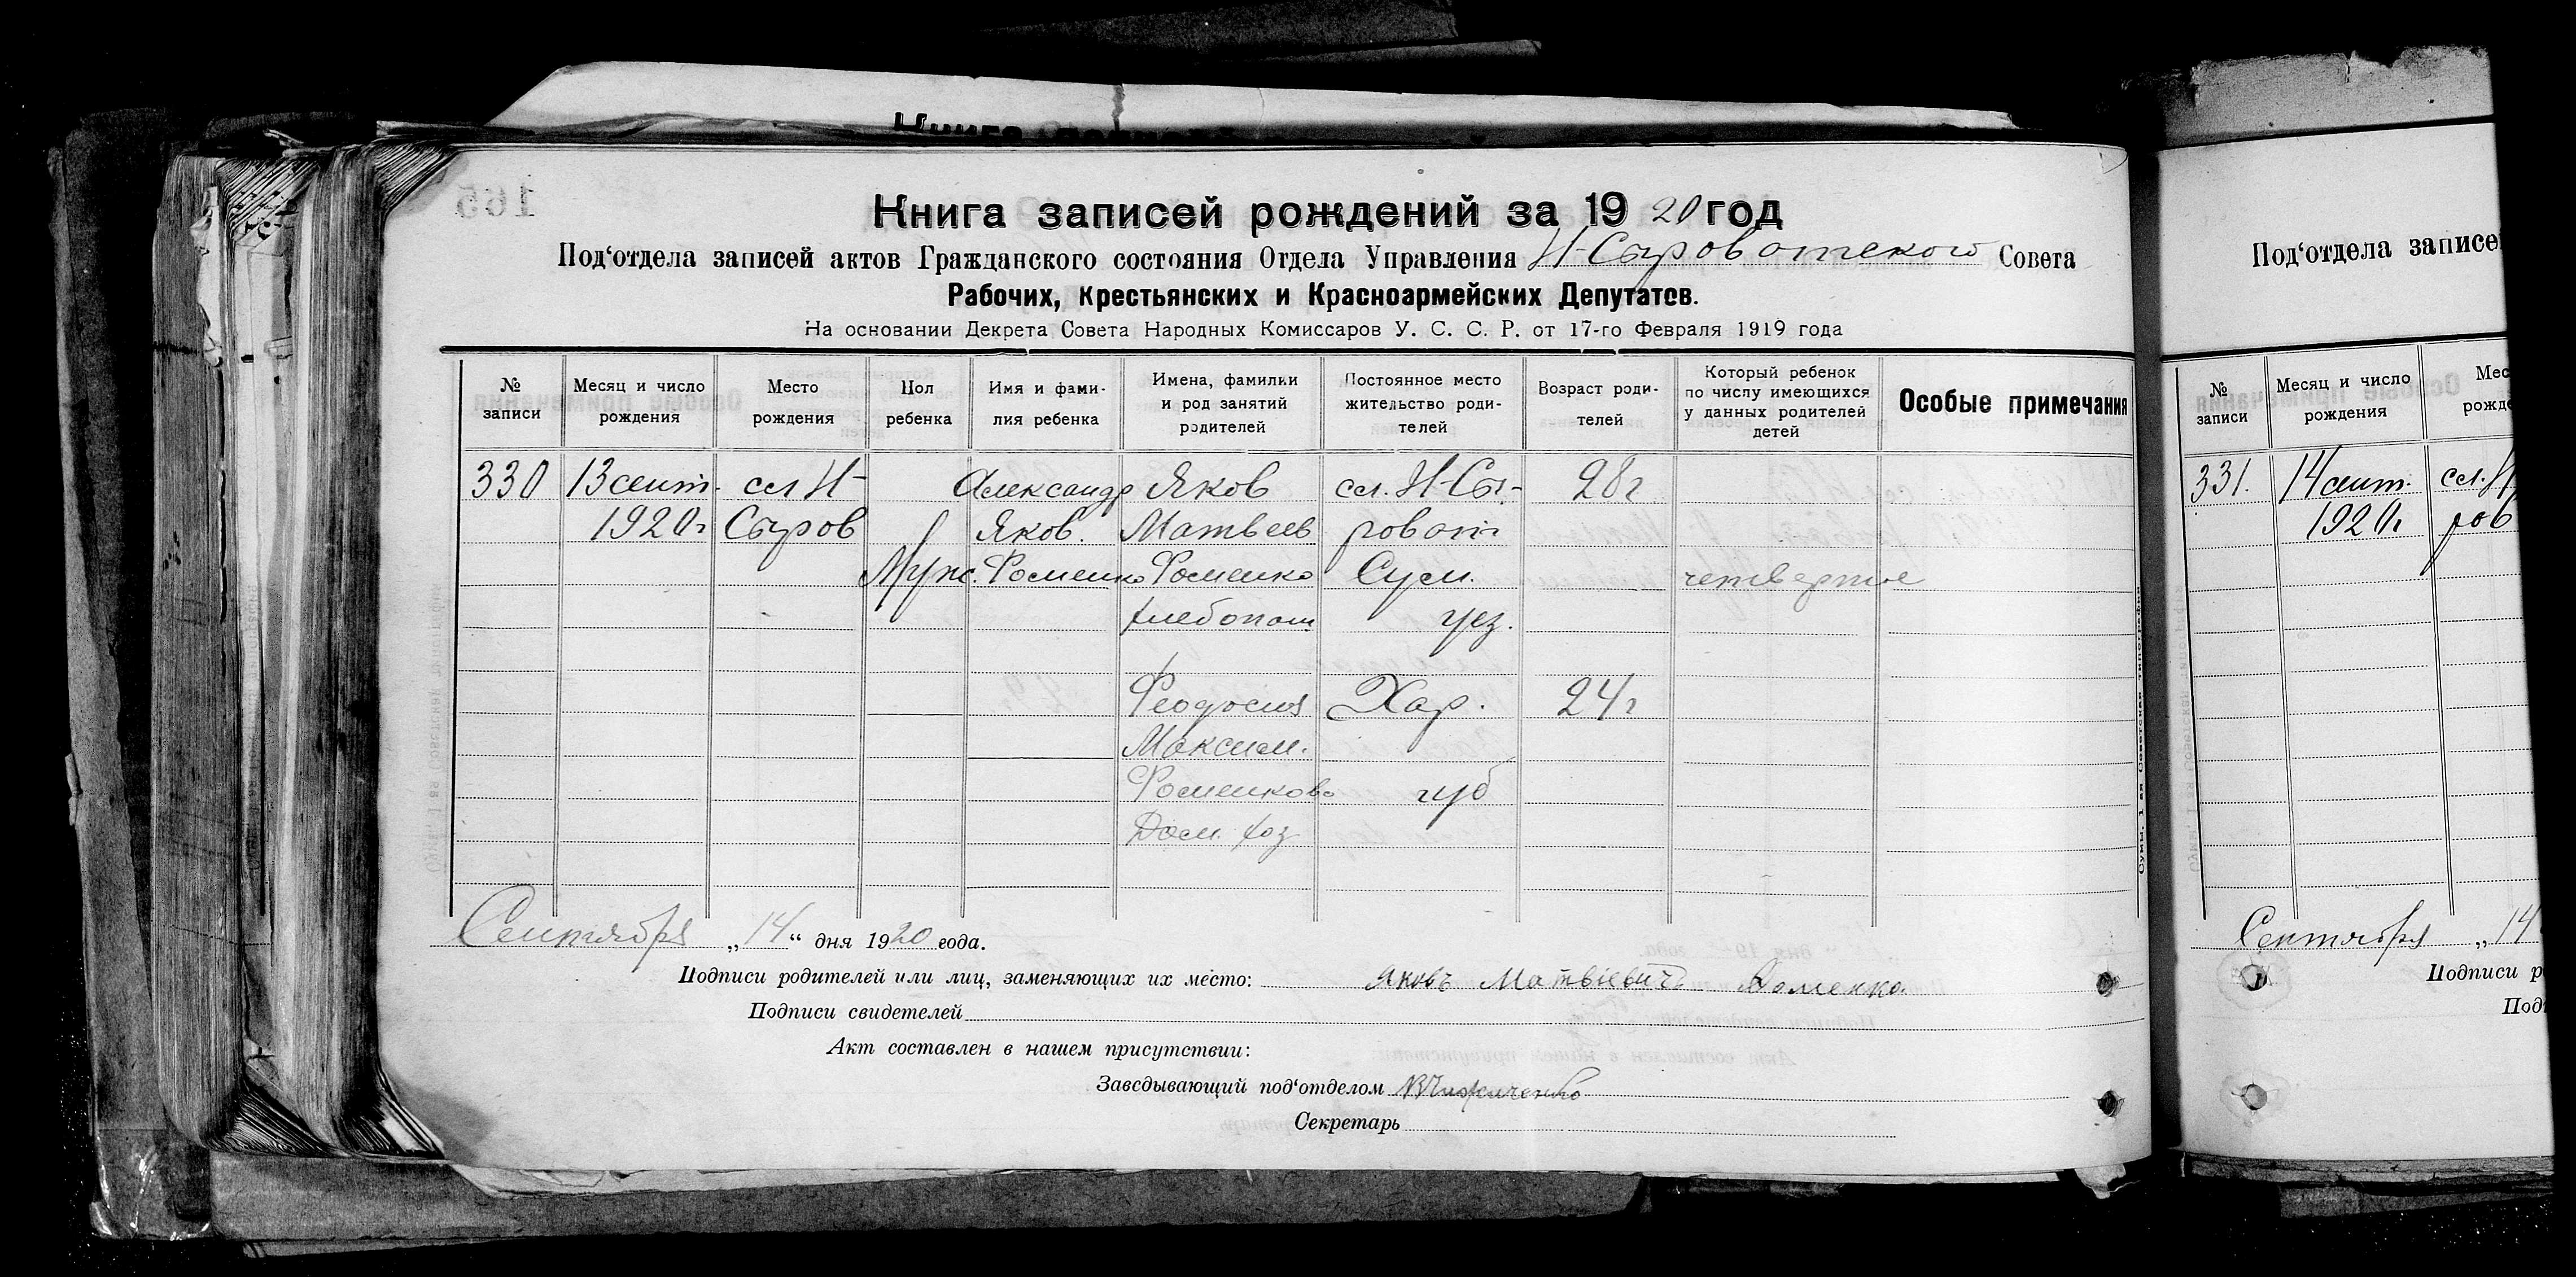 Книга записей рождений за 1920 год
Под‘отдела записей актов Гражданского состояния Отдела Управления Н-Сыроватского Совета
Рабочих, Крестьянских и Красноармейских Депутатов.
На основании Декрета Совета Народных Комиссаров У. С. С. Р. от 17-го Февраля 1919 года
№ записи
Месяц и число рождения
Место рождения
Пол ребенка
Имя и фами-
лия ребенка
Имена, фамилии
и род занятий
родителей
Постоянное место
жительство роди-
телей
Возраст роди-
телей
Который ребенок
по числу имеющихся
у данных родителей
детей
Особые примечания
330 13 сент. сл Н- Александр Яков сл. Н-Сы- 28 г
1920 г Сыров Яков. Матвеев роват
Муж. Фоменко Фоменко Сум. четвертое
хлебопаш уез.
Феодосия Хар. 24 г
Максим.
Фоменкова губ
Дом. хоз
Сентября „14“ дня 1920 года.
Подписи родителей или лиц, заменяющих их место: Яковъ Матвіевичъ Фоменко
Подписи свидетелей
Акт составлен в нашем присутствии:
Заведывающий под‘отделом
Секретарь
165
Сумы, 1-ая Советская типография
Под‘отдела записей
№ записи
Месяц и число рождения
Мес
рожде
331. 14 сент. сл. Н
1920 г. ров
Сентября „14
Подписи р
Под